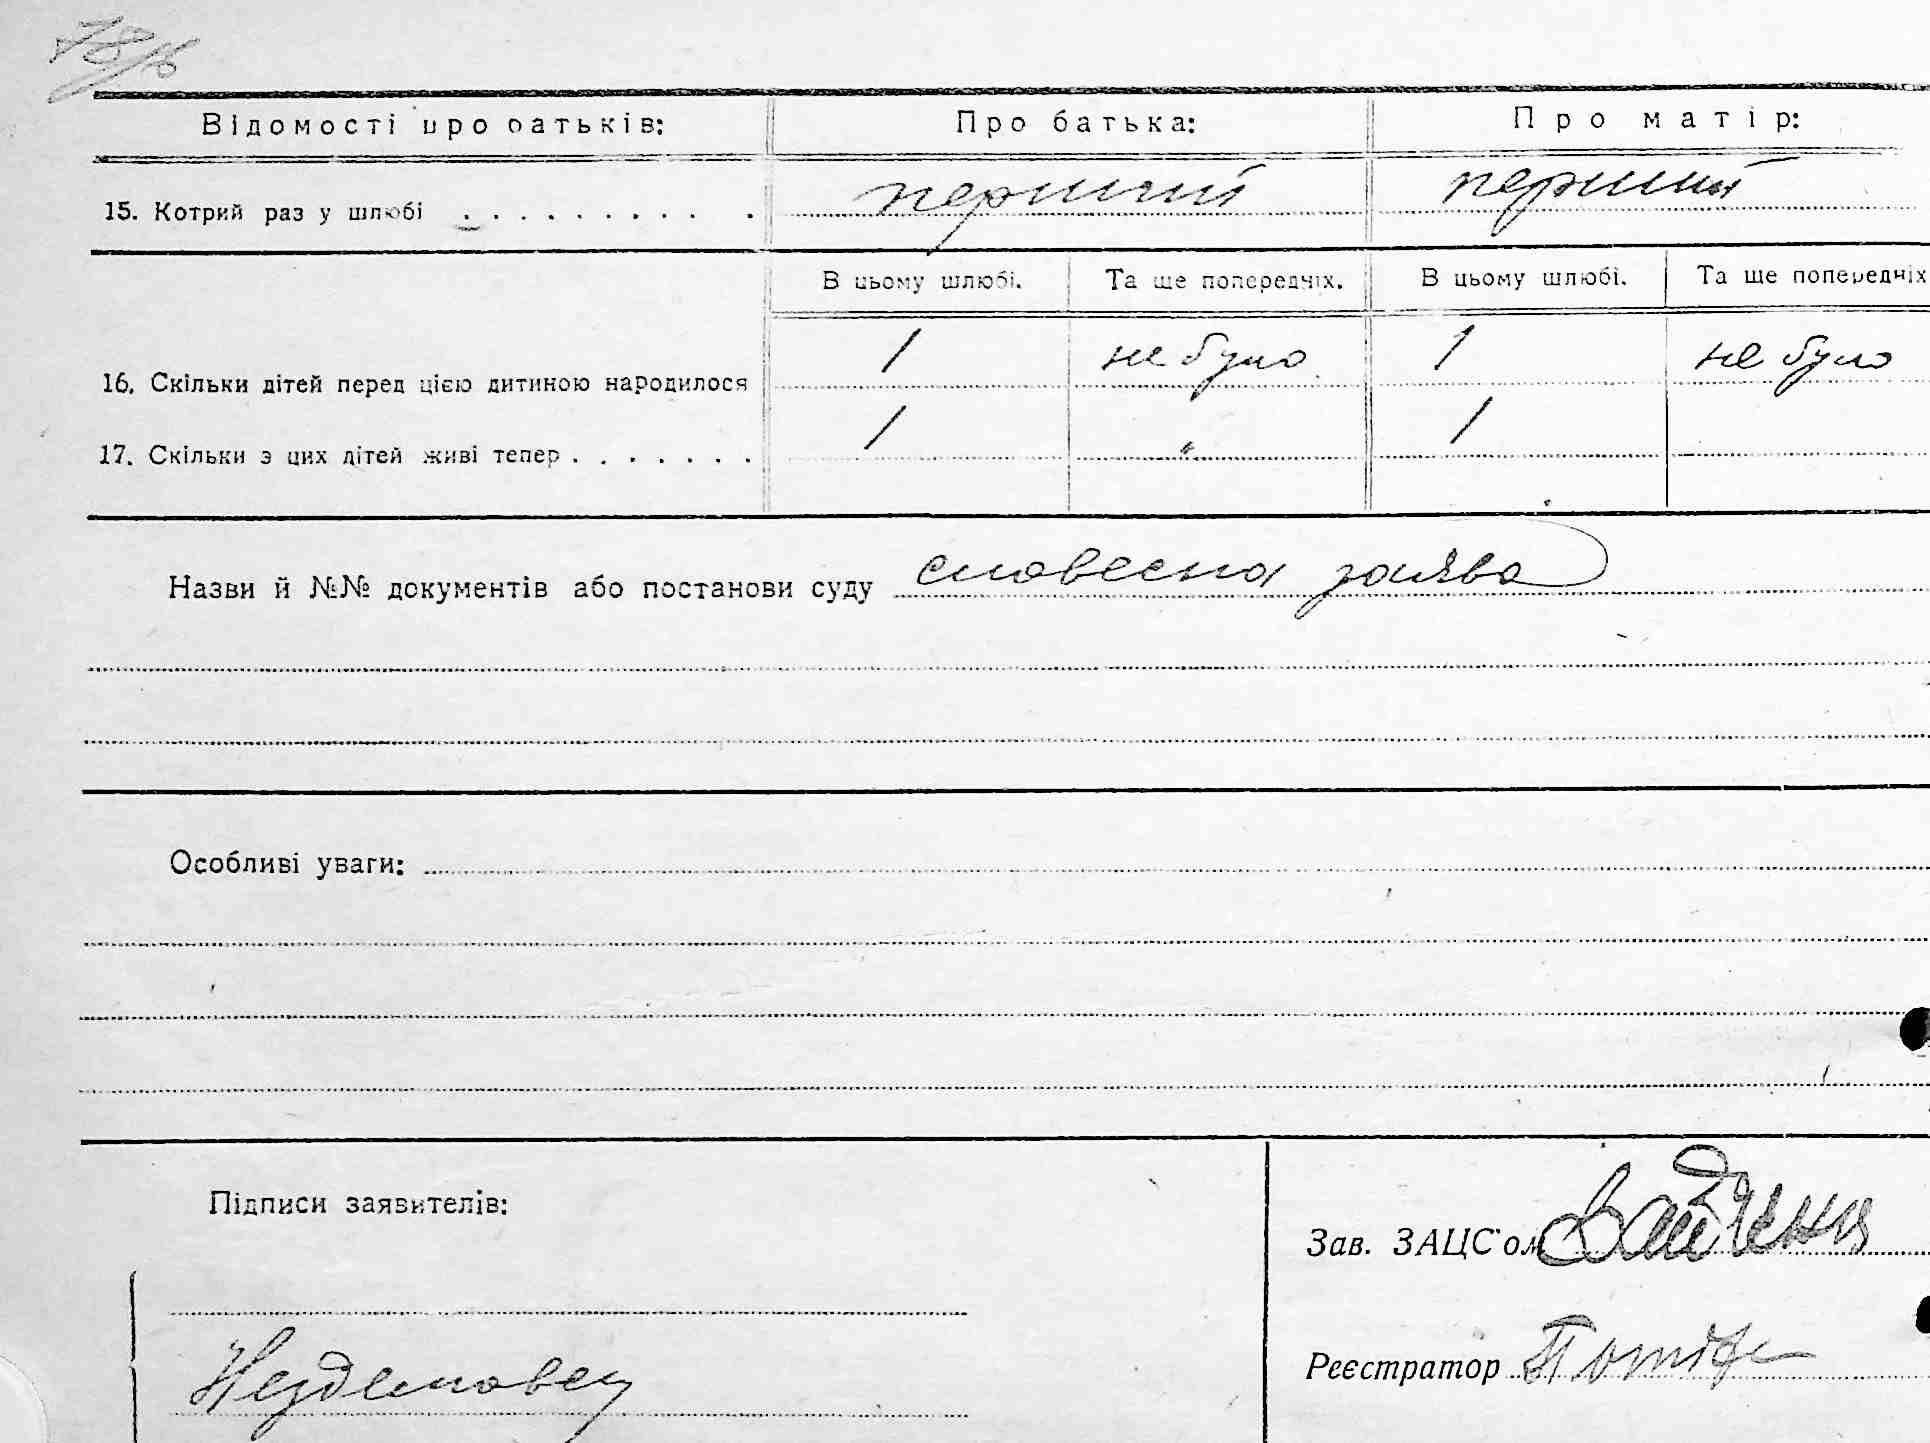 78/16
Відомості про батьків: Про батька: Про матір:
15. Котрий раз у шлюбі . . . . . . . . . . перший перший
В цьому шлюбі. Та ще попередніх. В цьому шлюбі. Та ще попередніх
16. Скільки дітей перед цією дитиною народилося 1 не було 1 не було
17. Скільки з цих дітей живі тепер . . . . . . . 1 " 1
Назви й №№ документів або постанови суду словесна заява
Особливі уваги:
Підписи заявителів:
Зав. ЗАЦС'ом
Реєстратор